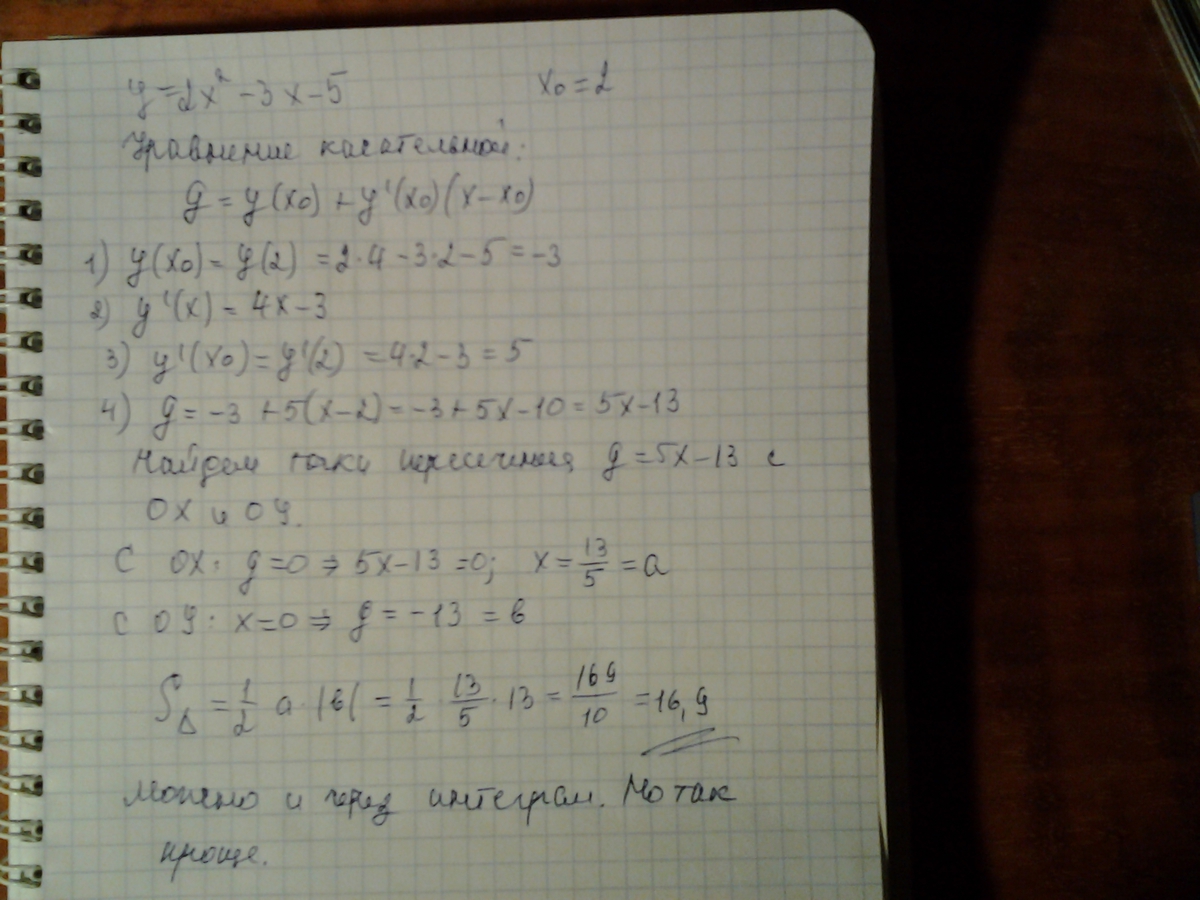 y = 2x² - 3x - 5 x₀ = 2
Уравнение касательной:
g = y(x₀) + y'(x₀)(x - x₀)
1) y(x₀) = y(2) = 2·4 - 3·2 - 5 = -3
2) y'(x) = 4x - 3
3) y'(x₀) = y'(2) = 4·2 - 3 = 5
4) g = -3 + 5(x - 2) = -3 + 5x - 10 = 5x - 13
Найдем точки пересечения g = 5x - 13 с
OX и OY.
С OX: g = 0 ⇒ 5x - 13 = 0; x = 13/5 = a
С OY: x = 0 ⇒ g = -13 = в
S_Δ = 1/2 a·|в| = 1/2 · 13/5 · 13 = 169/10 = 16,9
Можно и через интеграл. Но так
проще.